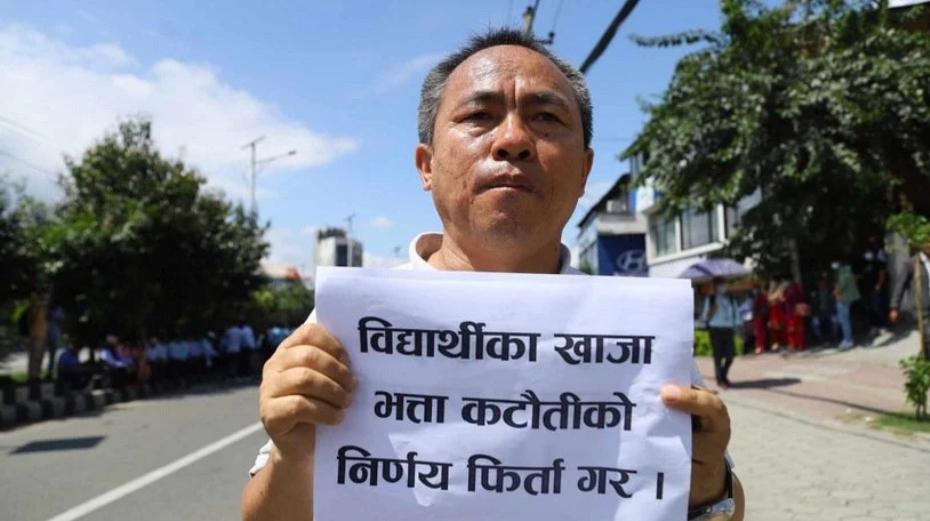 विद्यार्थीका खाजा
भत्ता कटौतीको
निर्णय फिर्ता गर ।